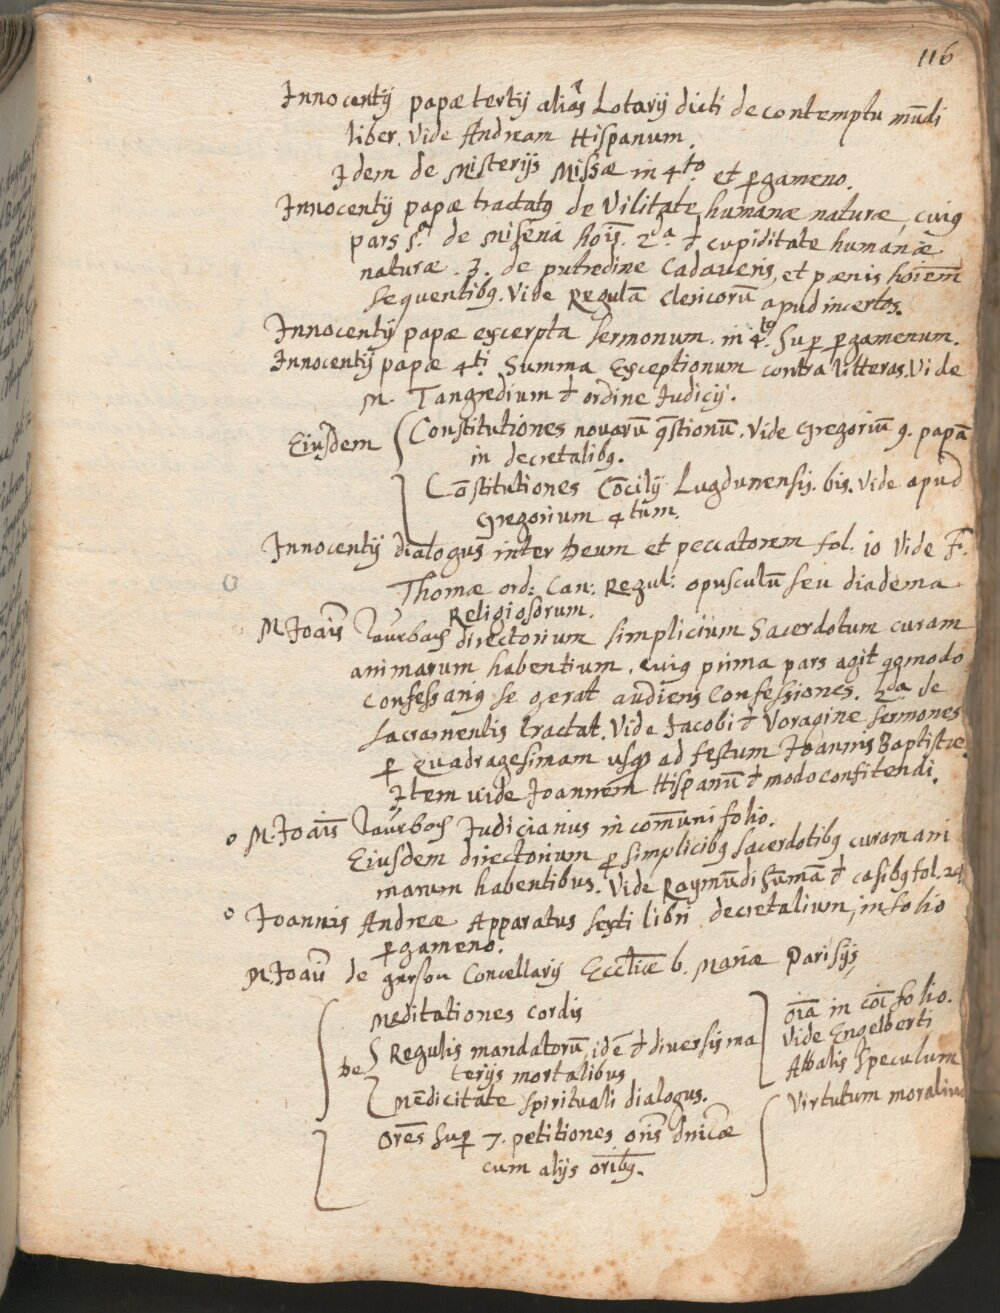 116
Innocentij papæ tertij aliàs Lotarij dicti de contemptu mūdi
liber. Vide Andream Hispanum.
Idem de Misterijs Missæ in 4to et ꝑgameno.
Innocentij papæ tractatꝰ de Vilitate humanæ naturæ, cuiꝰ
pars 1.a de Miseria hoīs. 2.a đ cupiditate humanæ
naturæ. 3. de putredine Cadaueris, et pænis hoīem
sequentibꝰ. Vide Regulā Clericorū apud incertos.
Innocentij papæ excerpta sermonum. in 4to. Suꝑ ꝑgamenum.
Innocentij papæ 4ti Summa Exceptionum contra litteras. Vide
M. Tangredium đ ordine Judicij.
Eiusdem Constitutiones nouarū q̄stionū. Vide Gregoriū 9. papā
in decretalibꝰ.
Cōstitutiones Cōcilij Lugdunensis. bis. Vide apud
Gregorium 4tum.
Innocentij dialogus inter Deum et peccatorem fol. 10 Vide F.
Thomæ ord: Can: Regul: opusculū seu diadema
Religiosorum.
M. Joāis Aurbach directorium simplicium Sacerdotum curam
animarum habentium. cuiꝰ prima pars agit quomodo
Confessariꝰ se gerat audiens Confessiones. 2da de
sacramentis tractat. Vide Jacobi đ Voragine sermones
ꝑ Quadragesimam usqꝫ ad festum Joannis Baptistæ.
Item uide Joannem Hispanū đ modo confitendi.
o M. Joāis Aurbach Judicianus in com̄uni folio.
Eiusdem directorium ꝑ simplicibꝰ sacerdotibꝰ curam ani
marum habentibus. Vide Raymūdi sum̄ā đ casibꝰ fol. 24
o Joannis Andreæ Apparatus sexti libri decretalium, in folio
ꝑgameno.
M. Joān̄ de gerson Concellarij Eccliæ b. Mariæ Parisijs
Meditationes cordis
De Regulis mandatorū, idē đ diuersis ma
terijs mortalibus
Mēdicitate spirituali dialogus.
Orēs suꝑ 7. petitiones orīs dnicæ
cum alijs oribꝰ.
oīa in cōi folio.
Vide Engelberti
Abbatis Speculum
Virtutum moralium